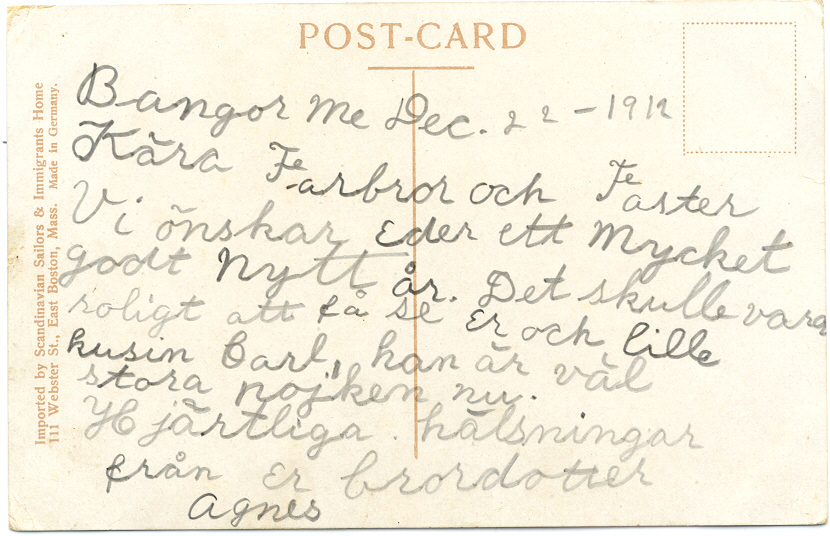 POST-CARD
Imported by Scandinavian Sailors & Immigrants Home
111 Webster St., East Boston, Mass. Made in Germany.
Bangor Me Dec. 22-1912
Kära Farbror och Faster
Vi önskar Eder ett Mycket
godt Nytt år. Det skulle vara
roligt att få se Er och lille
kusin Carl, han är väl
stora pojken nu.
Hjärtliga hälsningar
från Er brordotter
Agnes